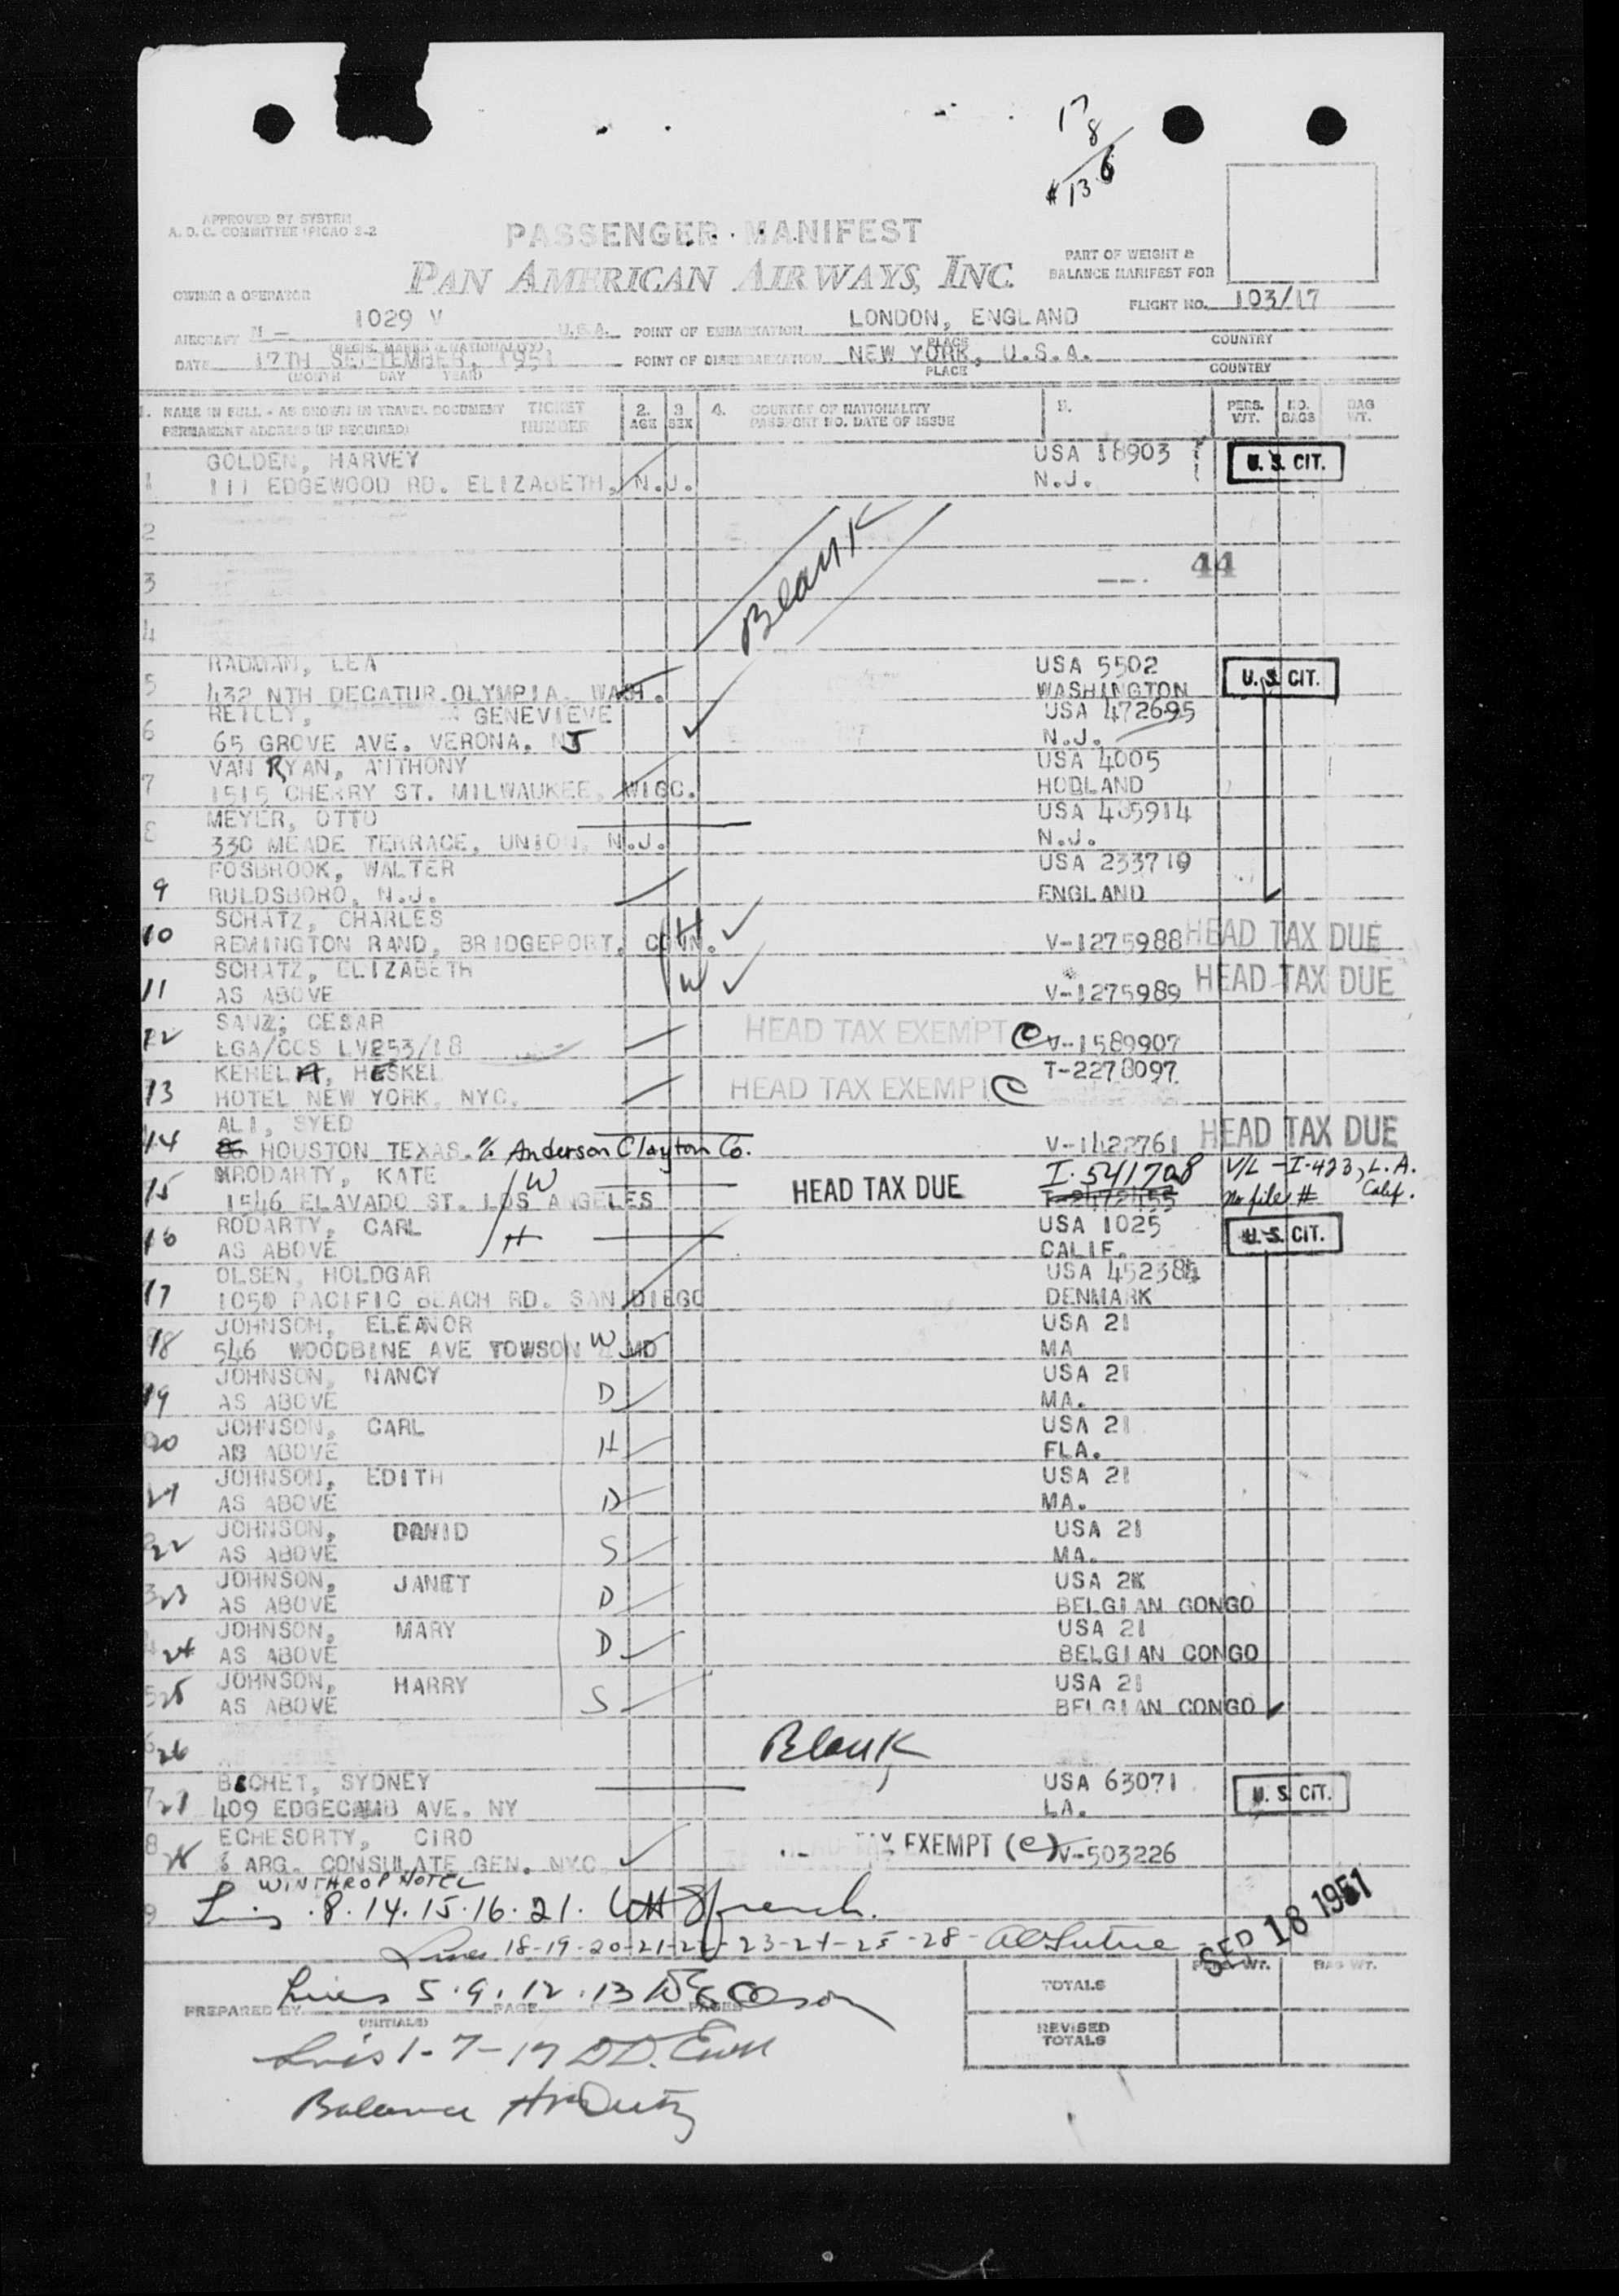 17
8
6
#13
APPROVED BY SYSTEM
A. O. C. COMMITTEE (PICAO S-2
PASSENGER MANIFEST
PAN AMERICAN AIRWAYS, INC.
PART OF WEIGHT &
BALANCE MANIFEST FOR
OWNER & OPERATOR
FLIGHT NO. 103/17
AIRCRAFT N - 1029 V U.S.A. POINT OF EMBARKATION LONDON, ENGLAND
(REGIS. MARKS & NATIONALITY) PLACE COUNTRY
DATE 17TH SEPTEMBER, 1951 POINT OF DISEMBARKATION NEW YORK, U.S.A.
(MONTH DAY YEAR) PLACE COUNTRY
1. NAME IN FULL - AS SHOWN IN TRAVEL DOCUMENT TICKET 2. 3 4. COUNTRY OF NATIONALITY 5. PERS. NO. BAG
PERMANENT ADDRESS (IF REQUIRED) NUMBER AGE SEX PASSPORT NO. DATE OF ISSUE WT. BAGS WT.
GOLDEN, HARVEY USA 18903 U. S. CIT.
1 111 EDGEWOOD RD. ELIZABETH, N.J. N.J.
2
3 Blank 44
4
RADMAN, LEA USA 5502 U. S. CIT.
5 432 NTH DECATUR.OLYMPIA. WASH. WASHINGTON
REILLY, GENEVIEVE USA 472695
6 65 GROVE AVE. VERONA. NJ N.J.
VAN RYAN, ANTHONY USA 4005
7 1515 CHERRY ST. MILWAUKEE, WISC. HOLLAND
MEYER, OTTO USA 485914
8 330 MEADE TERRACE, UNION, N.J. N.J.
FOSBROOK, WALTER USA 233719
9 RULDSBORO, N.J. ENGLAND
SCHATZ, CHARLES H
10 REMINGTON RAND, BRIDGEPORT, CONN. V-1275988 HEAD TAX DUE
SCHATZ, ELIZABETH W
11 AS ABOVE V-1275989 HEAD TAX DUE
SANZ; CESAR HEAD TAX EXEMPT C
12 LGA/CCS LV253/18 V-1589907
KEHELA, HESKEL T-2278097
13 HOTEL NEW YORK. NYC. HEAD TAX EXEMPT C
ALI, SYED
14 HOUSTON TEXAS. % Anderson Clayton Co. V-1422761 HEAD TAX DUE
RODARTY, KATE W I-541708 V/L -I-423, L.A.
15 1546 ELAVADO ST. LOS ANGELES HEAD TAX DUE T-2472455 No file # Calif.
RODARTY, CARL USA 1025 U. S. CIT.
16 AS ABOVE H CALIF.
OLSEN, HOLDGAR USA 452384
17 1050 PACIFIC BEACH RD. SAN DIEGO DENMARK
JOHNSON, ELEANOR USA 21
18 546 WOODBINE AVE TOWSON W MD MA
JOHNSON, NANCY USA 21
19 AS ABOVE D MA.
JOHNSON, CARL USA 21
20 AS ABOVE H FLA.
JOHNSON, EDITH USA 21
21 AS ABOVE D MA.
JOHNSON, DAVID USA 21
22 AS ABOVE S MA.
JOHNSON, JANET USA 21
23 AS ABOVE D BELGIAN CONGO
JOHNSON, MARY USA 21
24 AS ABOVE D BELGIAN CONGO
JOHNSON, HARRY USA 21
25 AS ABOVE S BELGIAN CONGO
26 Blank
BECHET, SYDNEY USA 63071 U. S. CIT.
27 409 EDGECOMB AVE. NY LA.
ECHESORTY, CIRO TAX EXEMPT (C) V-503226
28 % ARG. CONSULATE GEN. NYC.
WINTHROP HOTEL
9 8. 14. 15. 16. 21.
SEP 18 1951
Lines 18-19-20-21-22-23-24-25-28-
PERS. WT. BAG WT.
TOTALS
Lines 5. 9. 12. 13
PREPARED BY PAGE OF PAGES
(INITIALS)
REVISED
TOTALS
1-7-17
Balance